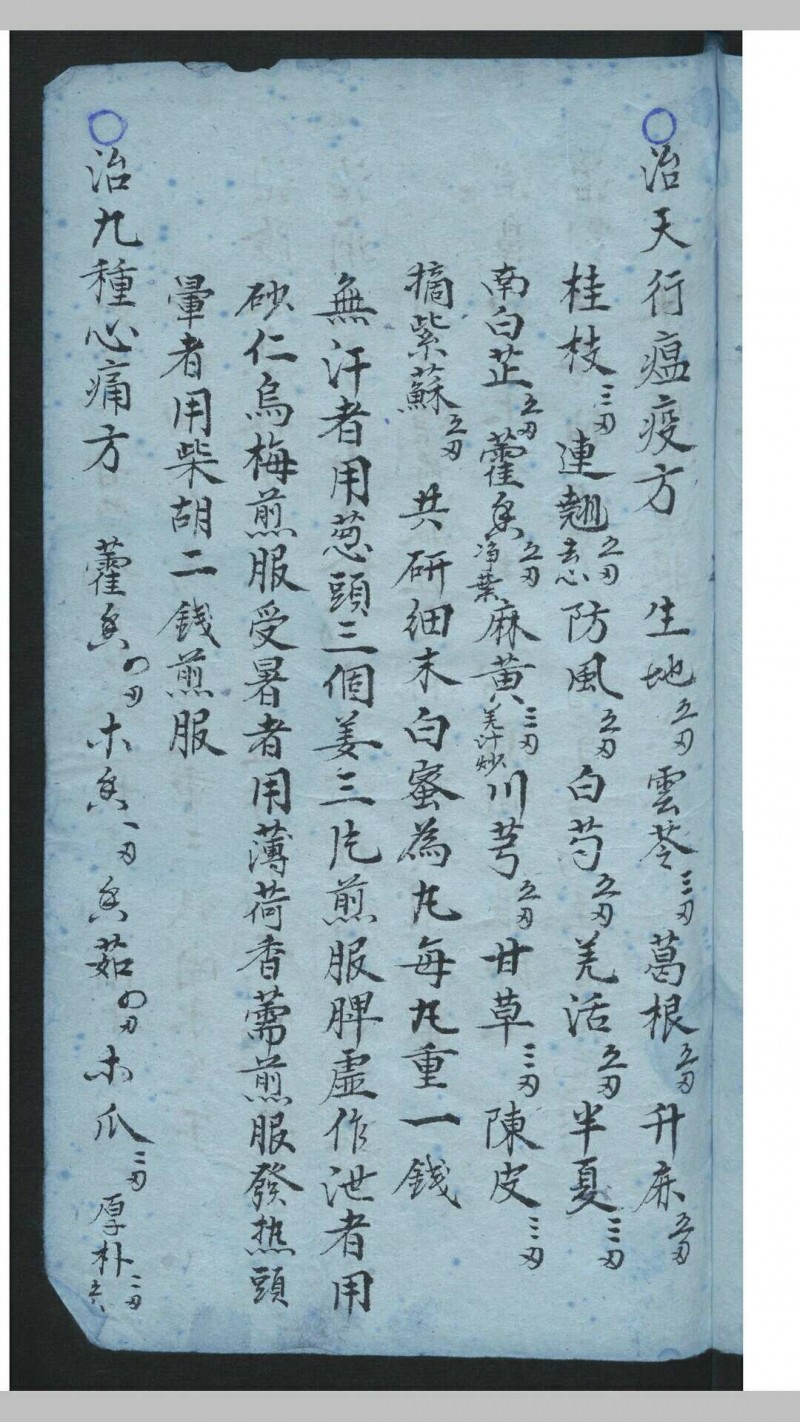 ○治天行瘟疫方 生地五刄雲苓三刄葛根五刄升麻五刄
桂枝三刄連翹五刄去心防風五刄白芍五刄羌活五刄半夏三刄
南白芷五刄藿香五刄净葉麻黄三刄羌汁炒川芎五刄甘草三刄陳皮三刄
摘紫蘇五刄 共研細末白蜜為九每九重一錢
無汗者用葱頭三個姜三片煎服脾虛作泄者用
砂仁烏梅煎服受暑者用薄荷香薷煎服發热頭
暈者用柴胡二錢煎服
○治九種心痛方 藿香四刄木香一刄香茹四刄木瓜二刄厚朴二刄